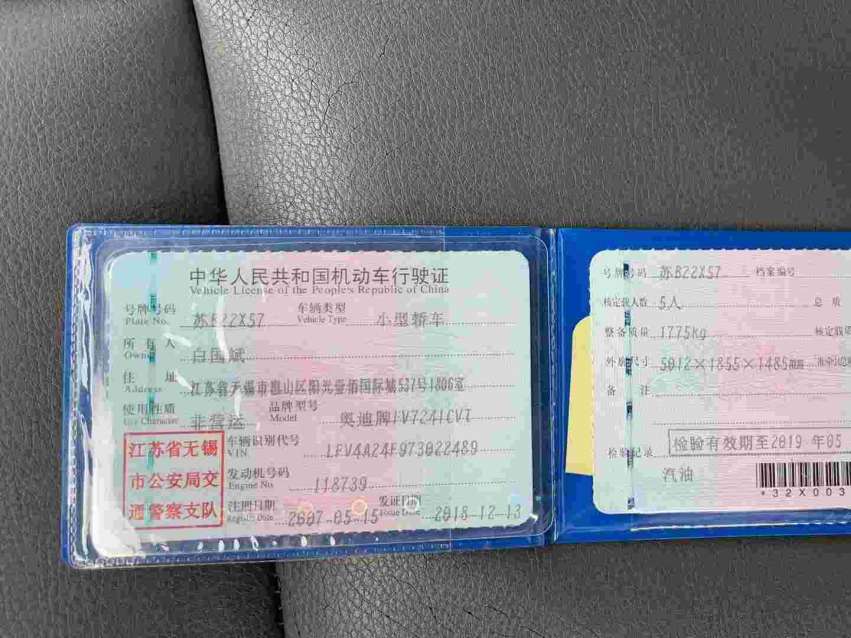 中华人民共和国机动车行驶证
Vehicle License of the People's Republic of China
号牌号码 苏B22X57 车辆类型 小型轿车
Plate No. Vehicle Type
所有人 白国斌
Owner
住址 江苏省无锡市惠山区阳光壹佰国际城537号1806室
Address
使用性质 非营运 品牌型号 奥迪牌FV7241CVT
Use Character Model
江苏省无锡
市公安局交
通警察支队
车辆识别代号 LFV4A24F973022489
VIN
发动机号码 118739
Engine No.
注册日期 2007-05-15 发证日期 2018-12-13
Register Date Issue Date
号牌号码 苏B22X57 档案编号
核定载人数 5人 总质
整备质量 1775kg 核定载质
外廓尺寸 5012×1855×1485mm
备注
检验记录 检验有效期至2019年05
汽油
*32X003